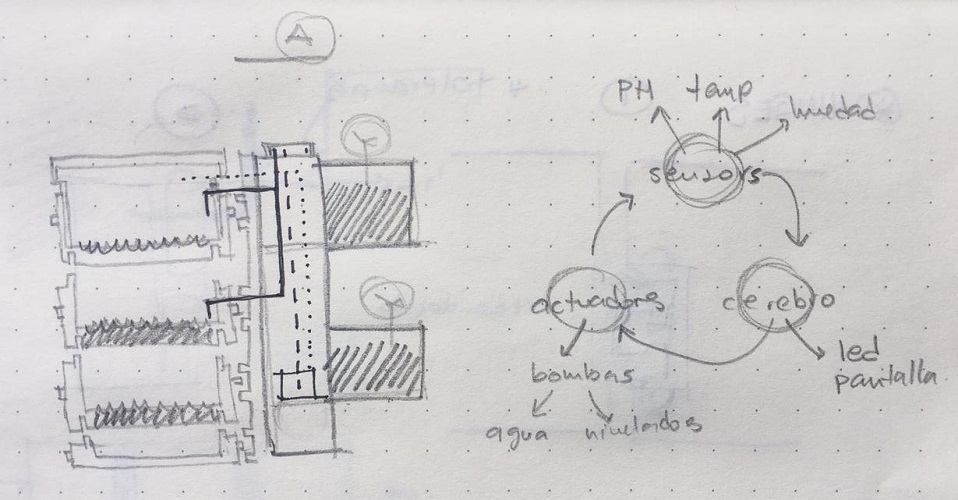 A
PH temp humedad
sensors
actuadors cerebro
led
pantalla
bombas
agua nivelados